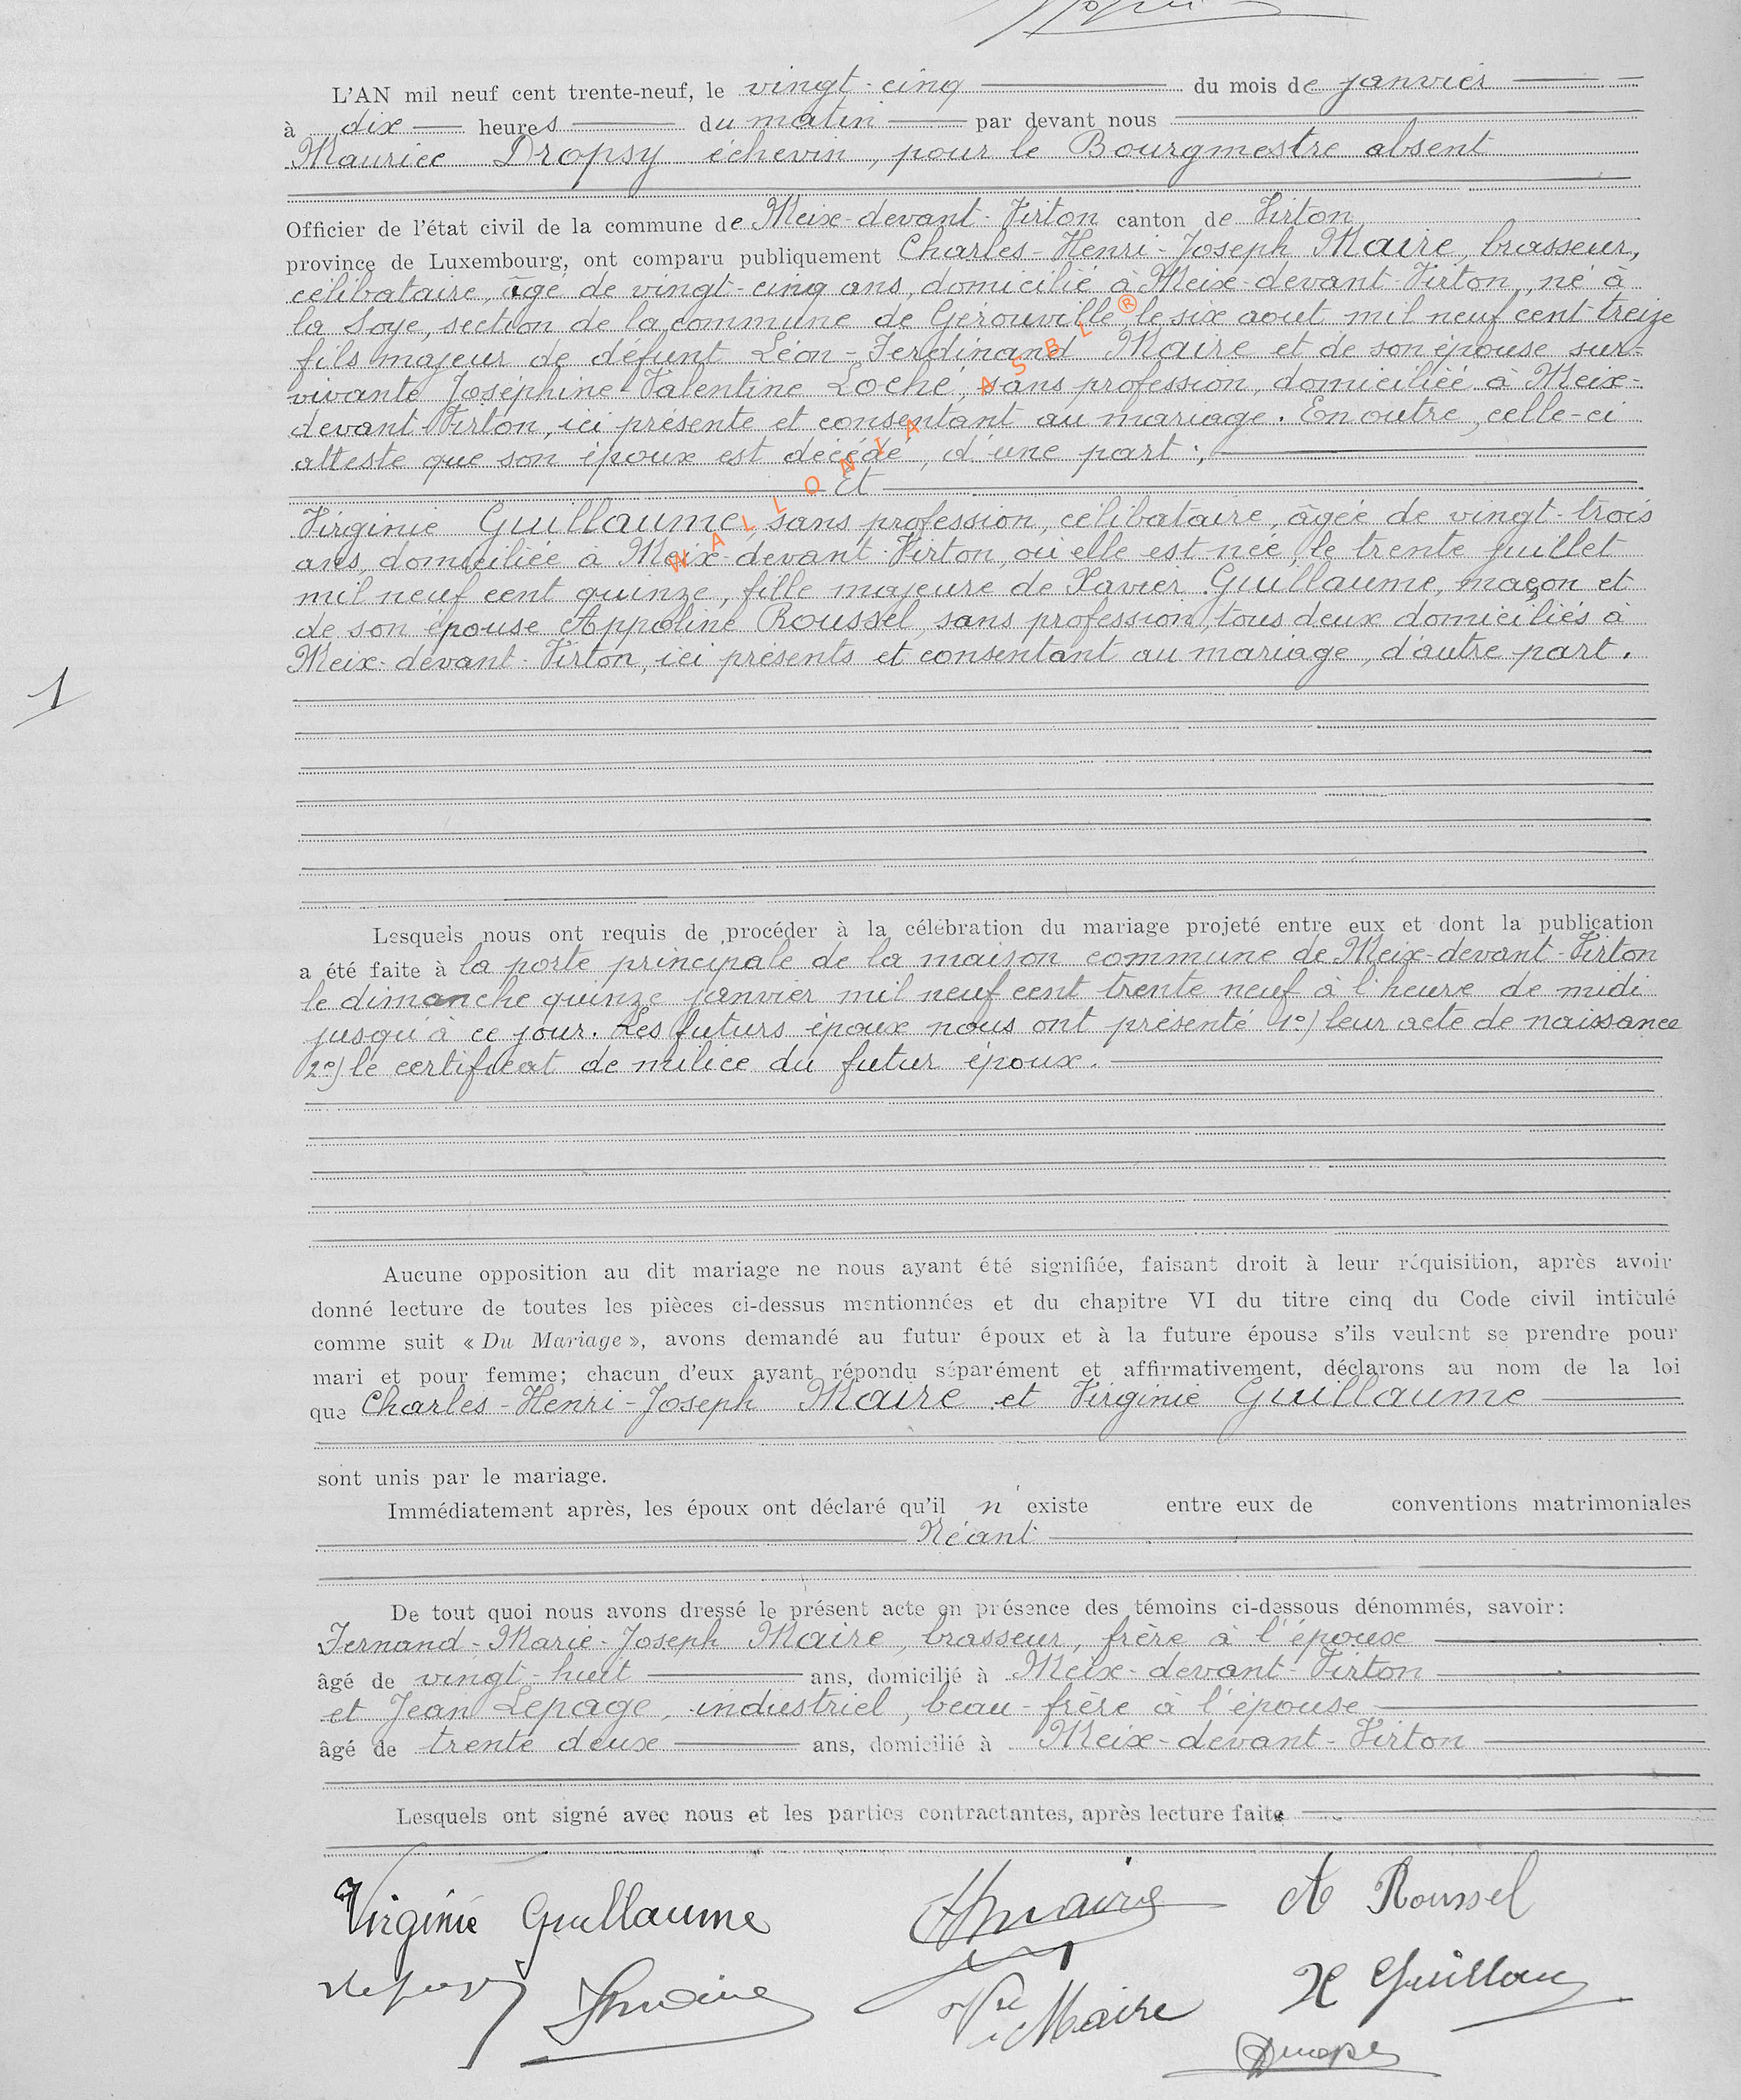 L'AN mil neuf cent trente-neuf, le vingt-cinq du mois de janvier
à dix heures du matin par devant nous
Maurice Dropsy échevin, pour le Bourgmestre absent
Officier de l'état civil de la commune de Meix-devant-Virton canton de Virton
province de Luxembourg, ont comparu publiquement Charles-Henri-Joseph Maire, brasseur,
célibataire, âgé de vingt-cinq ans, domicilié à Meix-devant-Virton, né à
la Soye, section de la commune de Gérouville le six aout mil neuf cent treize
fils majeur de défunt Léon-Ferdinand Maire et de son épouse sur-
vivante Joséphine-Valentine Loché, sans profession, domiciliée à Meix-
devant-Virton, ici présente et consentant au mariage. En outre, celle-ci
atteste que son époux est décédé, d'une part;
Et
Virginie Guillaume, sans profession, célibataire, âgée de vingt-trois
ans, domiciliée à Meix-devant-Virton, où elle est née, le trente juillet
mil neuf cent quinze, fille majeure de Xavier Guillaume, maçon et
de son épouse Appoline Roussel, sans profession, tous deux domiciliés à
Meix-devant-Virton, ici présents et consentant au mariage, d'autre part.
1
Lesquels nous ont requis de procéder à la célébration du mariage projeté entre eux et dont la publication
a été faite à la porte principale de la maison commune de Meix-devant-Virton
le dimanche quinze janvier mil neuf cent trente neuf à l'heure de midi
jusqu'à ce jour. Les futurs époux nous ont présenté 1°) leur acte de naissance
2°) le certificat de milice du futur époux.
Aucune opposition au dit mariage ne nous ayant été signifiée, faisant droit à leur réquisition, après avoir
donné lecture de toutes les pièces ci-dessus mentionnées et du chapitre VI du titre cinq du Code civil intitulé
comme suit « Du Mariage », avons demandé au futur époux et à la future épouse s'ils veulent se prendre pour
mari et pour femme; chacun d'eux ayant répondu séparément et affirmativement, déclarons au nom de la loi
que Charles-Henri-Joseph Maire et Virginie Guillaume
sont unis par le mariage.
Immédiatement après, les époux ont déclaré qu'il n'existe entre eux de conventions matrimoniales
Néant
De tout quoi nous avons dressé le présent acte en présence des témoins ci-dessous dénommés, savoir:
Fernand-Marie-Joseph Maire, brasseur, frère à l'époux
âgé de vingt-huit ans, domicilié à Meix-devant-Virton
et Jean Lepage, industriel, beau-frère à l'épouse
âgé de trente deux ans, domicilié à Meix-devant-Virton
Lesquels ont signé avec nous et les parties contractantes, après lecture faite
Virginie Guillaume Maire A Roussel
Maire Vve Maire X Guillaume
WALLONIA ASBL ®